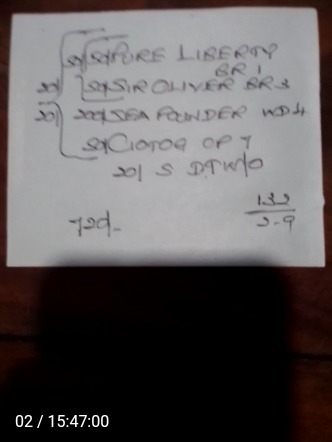 50/ 50/ PURE LIBERTY
BR 1
20/ 50/ SIR OLIVER BR 3
20/ 200/ SEA POUNDER WD 4
50/ CIOTOG CP 7
20/ S D.T W/O
720/-
132
2-9
02 / 15:47:00